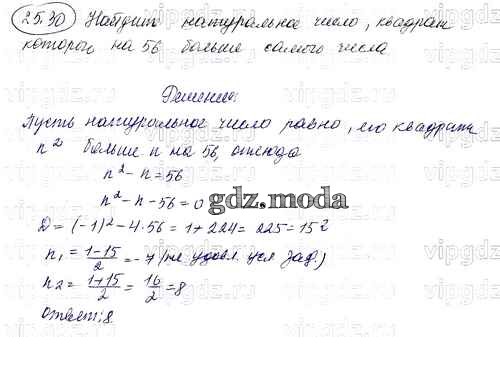 25.30 Найдите натуральное число, квадрат
которого на 56 больше самого числа
Решение:
Пусть натуральное число равно, его квадрат
n² больше n на 56, отсюда
n² - n = 56
n² - n - 56 = 0
gdz.moda
D = (-1)² - 4·56 = 1 + 224 = 225 = 15²
n₁ = (1-15)/2 = -7 (не удовл. усл зад.)
n₂ = (1+15)/2 = 16/2 = 8
Ответ: 8